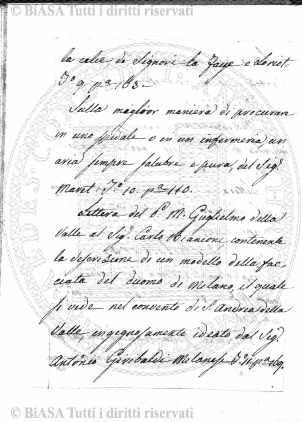 © BiASA Tutti i diritti riservati
la calce, de Signori la Faije e Loriot.
T.º 9. p.ª 163.
Sulla maglior maniera di procurare
in uno spedale o in un infermeria un
aria sempre salubre e pura, del Sig.
Maret. T.º 10. p.ª 110.
Lettera del P. M. Guglielmo della
Valle al Sig. Carlo Bianconi continente
la descrizione di un modello della fac
ciata del duomo di Milano, il quale
si vede nel convento di S. Andrea della
Valle, ingegnosamente ideato dal Sig.
Antonio Giribaldi Milanese T.º p.ª 169.
© BiASA Tutti i diritti riservati